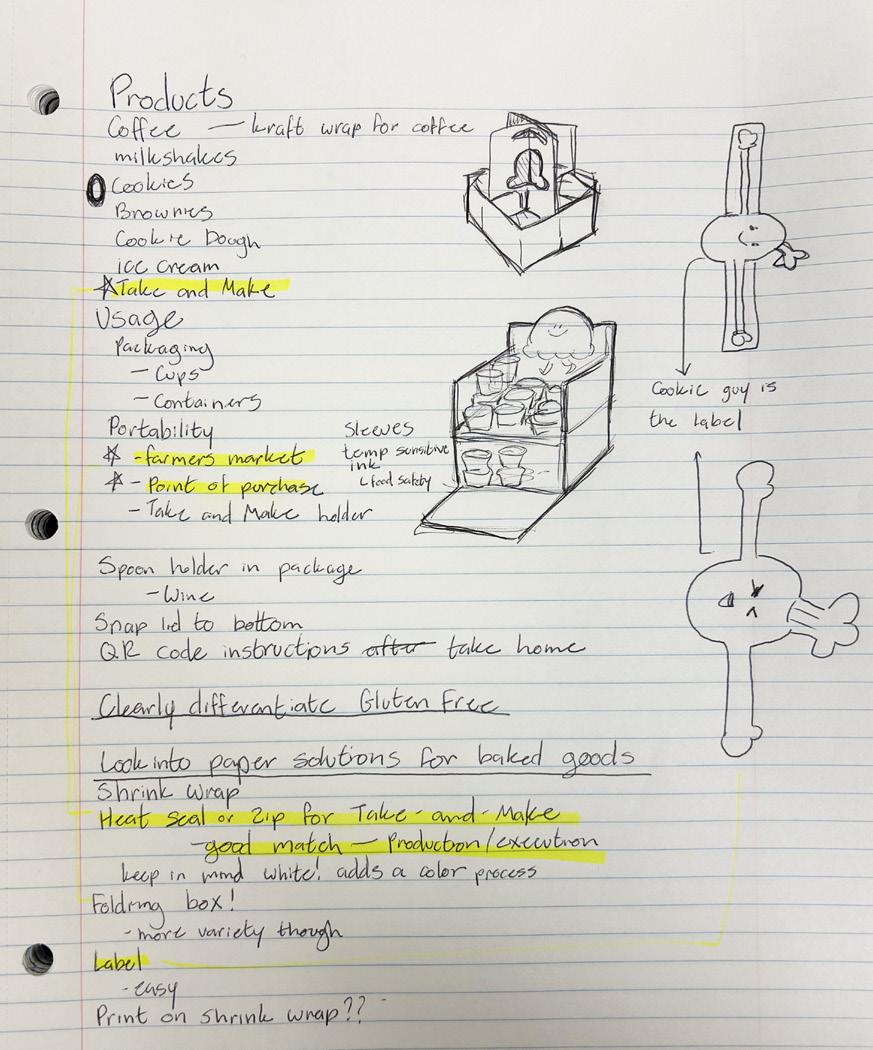 Products
Coffee — kraft wrap for coffee
milkshakes
Cookies
Brownies
Cookie Dough
ice cream
Take and Make
Usage
Packaging
- Cups
- Containers
Portability
- farmers market
- Point of purchase
- Take and Make holder
Sleeves
temp sensitive
ink
food safety
Cookie guy is
the label
Spoon holder in package
- Wine
Snap lid to bottom
QR code instructions after take home
Clearly differentiate Gluten Free
Look into paper solutions for baked goods
Shrink wrap
Heat seal or Zip for Take-and-Make
- good match — Production/execution
keep in mind white! adds a color process
Folding box!
- more variety though
Label
- easy
Print on shrink wrap??